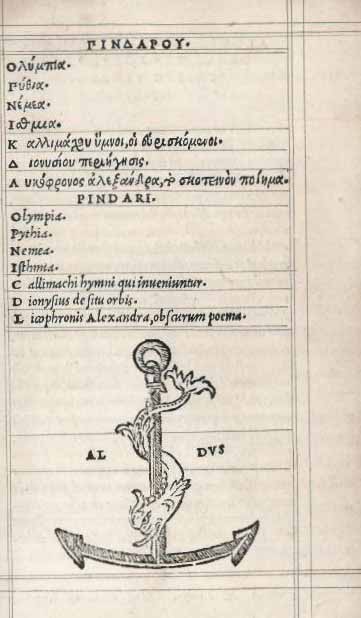 ΠΙΝΔΑΡΟΥ.
Ολύμπια.
Πύθια.
Νέμεα.
Ισθμια.
Κ αλλιμάχου ὕμνοι, οἱ εὑρισκόμενοι.
Δ ιονυσίου περιήγησις.
Λ υκόφρονος ἀλεξάνδρα, τὸ σκοτεινὸν ποίημα.
PINDARI.
Olympia.
Pythia.
Nemea.
Isthmia.
C allimachi hymni qui inueniuntur.
D ionysius de situ orbis.
L icophronis Alexandra, obscurum poema.
AL DVS